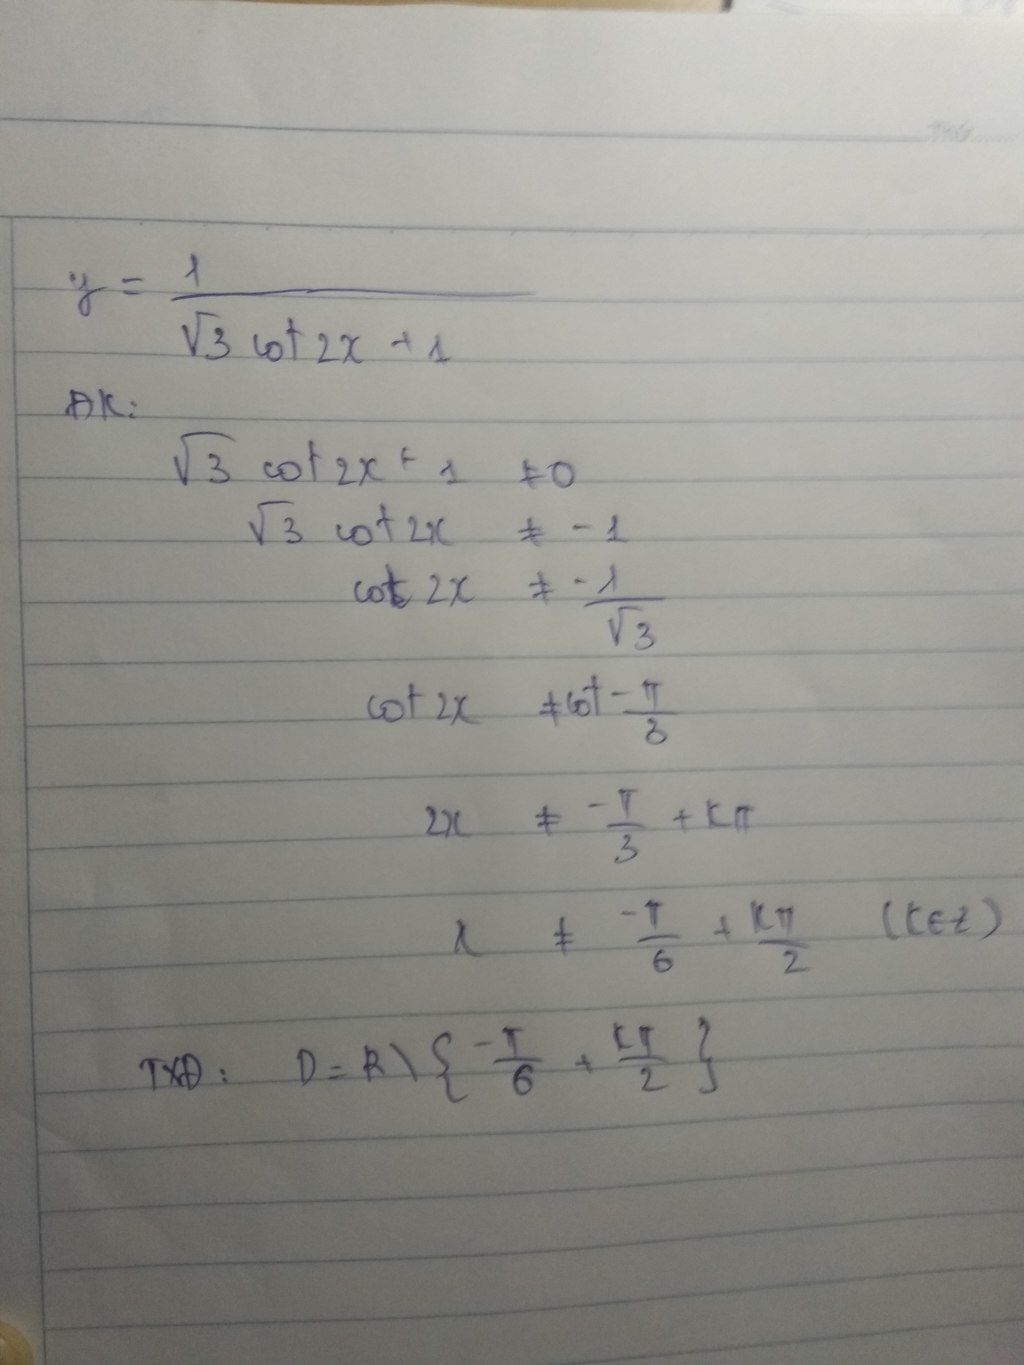 y = 1/(√3 cot 2x + 1)
ĐK:
√3 cot 2x + 1 ≠ 0
√3 cot 2x ≠ -1
cot 2x ≠ -1/√3
cot 2x ≠ cot -π/3
2x ≠ -π/3 + kπ
x ≠ -π/6 + kπ/2 (k∈Z)
TXĐ: D = R \ { -π/6 + kπ/2 }